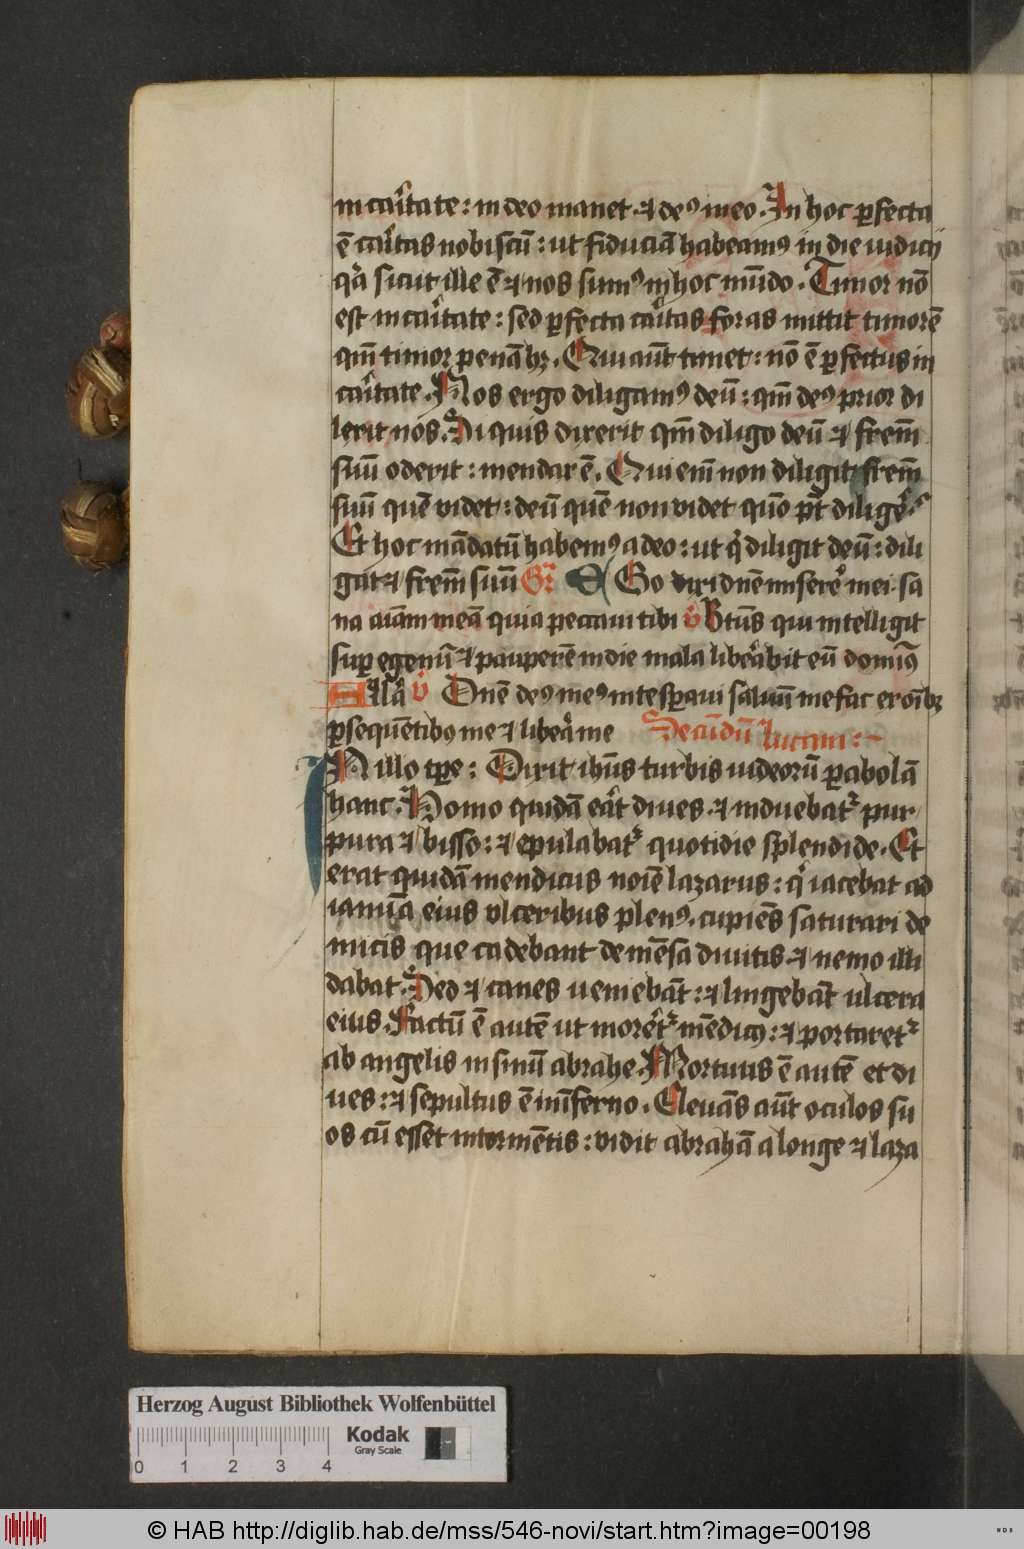 in caritate : in deo manet ⁊ deꝰ in eo . In hoc ꝑfecta
ē caritas nobiscū : ut fiduciā habeamꝰ in die iudicij
qͥa sicut ille ē ⁊ nos sumꝰ in hoc mūdo . Timor nō
est in caritate : sed ꝑfecta caritas foras mittit timorē
qm̄ timor penā hꝫ . Qui aūt timet : nō ē ꝑfectus in
caritate . Nos ergo diligamꝰ deū : qm̄ deꝰ prior di
lexit nos . Si quis dixerit qm̄ diligo deū ⁊ frem̄
suū oderit : mendax ē . Qui em̄ non diligit frem̄
suū quē videt : deū quē non videt quō pt̄ diligere
Et hoc mādatū habemꝰ a deo : ut qͥ diligit deū : dili
gat ⁊ frem̄ suū Gr̄ Ego dixi dnē miserere mei . sa
na aīam meā quia peccaui tibi v̄ Btūs qui intelligit
suꝑ egenū ⁊ pauperē in die mala liberabit eū dominꝰ
Alla v̄ Dnē deꝰ meꝰ in te sꝑaui saluū me fac ex oībꝫ
ꝑsequētibꝰ me ⁊ libera me Secūdū lucam :
IN illo tꝑe : Dixit ihūs turbis iudeorū ꝑabolā
hanc . Homo quidā erat diues . ⁊ induebatᷣ pur
pura ⁊ bisso : ⁊ epulabatᷣ quotidie splendide . Et
erat quidā mendicus noīe lazarus : qͥ iacebat ad
ianuā eius vlceribus plenꝰ . cupiēs saturari de
micis que cadebant de mēsa diuitis . ⁊ nemo illi
dabat . Sed ⁊ canes veniebāt : ⁊ lingebāt ulcera
eius . Factū ē autē ut moreretᷣ mēdicꝰ : ⁊ portaretᷣ
ab angelis in sinū abrahe . Mortuus ē autē et di
ues : ⁊ sepultus ē in īferno . Eleuās aūt oculos su
os cū esset in tormētis : vidit abrahā a longe ⁊ laza
Herzog August Bibliothek Wolfenbüttel
0 1 2 3 4 Kodak
Gray Scale
© HAB http://diglib.hab.de/mss/546-novi/start.htm?image=00198